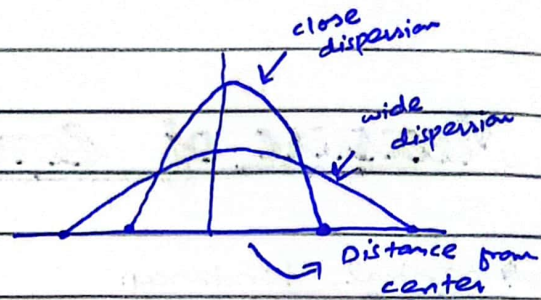 close
dispersion
wide
dispersion
Distance from
center